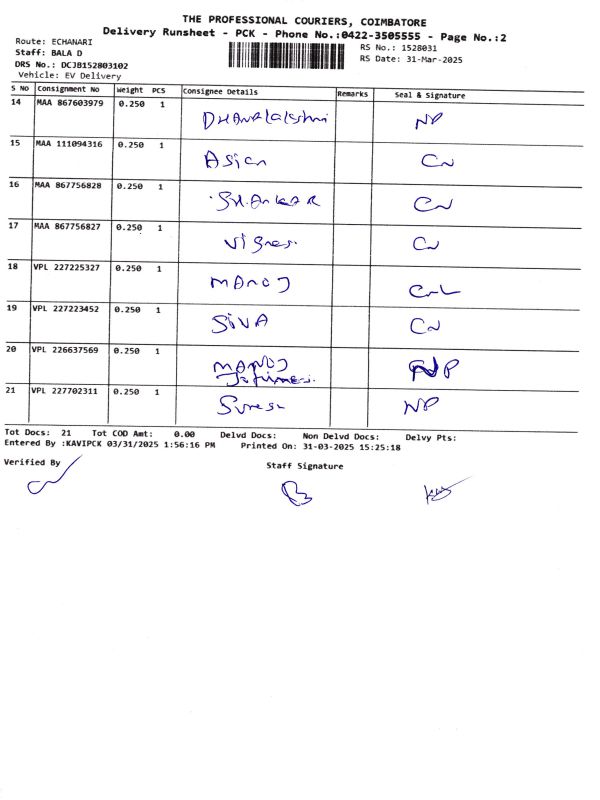 THE PROFESSIONAL COURIERS, COIMBATORE
Delivery Runsheet - PCK - Phone No.:0422-3505555 - Page No.:2
Route: ECHANARI
RS No.: 1528031
Staff: BALA D
RS Date: 31-Mar-2025
DRS No.: DCJB152803102
Vehicle: EV Delivery
S No Consignment No Weight PCS Consignee Details Remarks Seal & Signature
14 MAA 867603979 0.250 1 DHANALAkshmi NP
15 MAA 111094316 0.250 1 ASian
16 MAA 867756828 0.250 1
17 MAA 867756827 0.250 1
18 VPL 227225327 0.250 1 MANOJ
19 VPL 227223452 0.250 1 SiVA
20 VPL 226637569 0.250 1 MANOJ
21 VPL 227702311 0.250 1 NP
Tot Docs: 21 Tot COD Amt: 0.00 Delvd Docs: Non Delvd Docs: Delvy Pts:
Entered By :KAVIPCK 03/31/2025 1:56:16 PM Printed On: 31-03-2025 15:25:18
Verified By Staff Signature